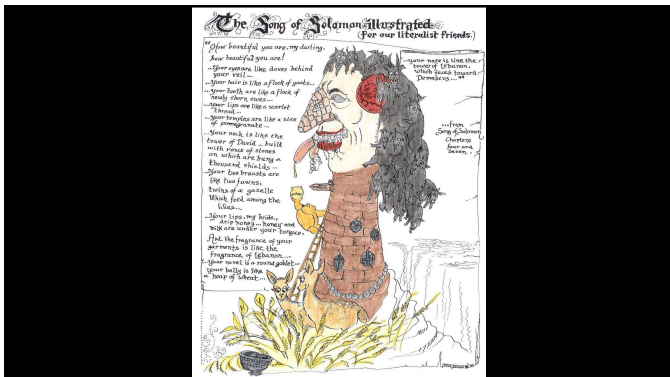 The Song of Solomon illustrated
(for our literalist friends.)
"How beautiful you are, my darling,
how beautiful you are!
...Your eyes are like doves behind
your veil...
...Your hair is like a flock of goats...
...Your teeth are like a flock of
newly shorn ewes...
...Your lips are like a scarlet
thread...
...Your temples are like a slice
of pomegranate...
...Your neck is like the
tower of David... built
with rows of stones
on which are hung a
thousand shields...
...Your two breasts are
like two fawns,
twins of a gazelle
which feed among the
lilies...
...Your lips, my bride,
drip honey... honey and
milk are under your tongue,
And the fragrance of your
garments is like the
fragrance of Lebanon...
...Your navel is a round goblet...
Your belly is like
a heap of wheat...
...your nose is like the
tower of Lebanon,
which faces toward
Damascus..."
...from
Song of Solomon
Chapters
four and
seven.